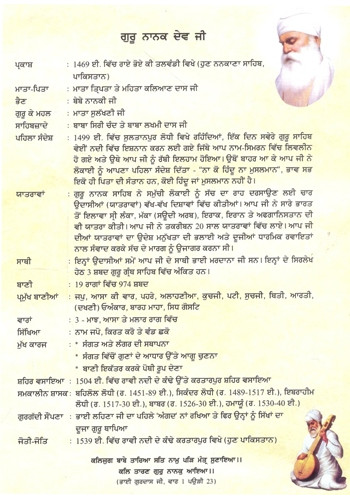 ਗੁਰੂ ਨਾਨਕ ਦੇਵ ਜੀ
ਪ੍ਰਕਾਸ਼ : 1469 ਈ. ਵਿੱਚ ਰਾਏ ਭੋਏ ਕੀ ਤਲਵੰਡੀ ਵਿਖੇ (ਹੁਣ ਨਨਕਾਣਾ ਸਾਹਿਬ,
ਪਾਕਿਸਤਾਨ)
ਮਾਤਾ-ਪਿਤਾ : ਮਾਤਾ ਤ੍ਰਿਪਤਾ ਤੇ ਮਹਿਤਾ ਕਲਿਆਣ ਦਾਸ ਜੀ
ਭੈਣ : ਬੇਬੇ ਨਾਨਕੀ ਜੀ
ਗੁਰੂ ਕੇ ਮਹਲ : ਮਾਤਾ ਸੁਲੱਖਣੀ ਜੀ
ਸਾਹਿਬਜ਼ਾਦੇ : ਬਾਬਾ ਸਿਰੀ ਚੰਦ ਤੇ ਬਾਬਾ ਲਖਮੀ ਦਾਸ ਜੀ
ਪਹਿਲਾ ਸੰਦੇਸ਼ : 1499 ਈ. ਵਿੱਚ ਸੁਲਤਾਨਪੁਰ ਲੋਧੀ ਵਿਖੇ ਰਹਿੰਦਿਆਂ, ਇੱਕ ਦਿਨ ਸਵੇਰੇ ਗੁਰੂ ਸਾਹਿਬ
ਵੇਈਂ ਨਦੀ ਵਿੱਚ ਇਸ਼ਨਾਨ ਕਰਨ ਲਈ ਗਏ ਜਿੱਥੇ ਆਪ ਨਾਮ-ਸਿਮਰਨ ਵਿੱਚ ਲਿਵਲੀਨ
ਹੋ ਗਏ ਅਤੇ ਉਥੇ ਆਪ ਜੀ ਨੂੰ ਰੱਬੀ ਇਲਹਾਮ ਹੋਇਆ। ਉਥੋਂ ਬਾਹਰ ਆ ਕੇ ਆਪ ਜੀ ਨੇ
ਲੋਕਾਈ ਨੂੰ ਆਪਣਾ ਪਹਿਲਾ ਸੰਦੇਸ਼ ਦਿੱਤਾ - "ਨਾ ਕੋ ਹਿੰਦੂ ਨਾ ਮੁਸਲਮਾਨ", ਭਾਵ ਸਭ
ਇਕੋ ਹੀ ਪਿਤਾ ਦੀ ਸੰਤਾਨ ਹਨ, ਕੋਈ ਹਿੰਦੂ ਜਾਂ ਮੁਸਲਮਾਨ ਨਹੀਂ ਹੈ।
ਯਾਤਰਾਵਾਂ : ਗੁਰੂ ਨਾਨਕ ਸਾਹਿਬ ਨੇ ਸਮੁੱਚੀ ਲੋਕਾਈ ਨੂੰ ਸੱਚ ਦਾ ਰਾਹ ਦਰਸਾਉਣ ਲਈ ਚਾਰ
ਉਦਾਸੀਆਂ (ਯਾਤਰਾਵਾਂ) ਵੱਖ-ਵੱਖ ਦਿਸ਼ਾਵਾਂ ਵਿੱਚ ਕੀਤੀਆਂ। ਆਪ ਜੀ ਨੇ ਸਾਰੇ ਭਾਰਤ
ਤੋਂ ਇਲਾਵਾ ਸ੍ਰੀ ਲੰਕਾ, ਮੱਕਾ (ਸਊਦੀ ਅਰਬ), ਇਰਾਕ, ਇਰਾਨ ਤੇ ਅਫਗਾਨਿਸਤਾਨ ਦੀ
ਵੀ ਯਾਤਰਾ ਕੀਤੀ। ਆਪ ਜੀ ਨੇ ਤਕਰੀਬਨ 20 ਸਾਲ ਯਾਤਰਾਵਾਂ ਵਿੱਚ ਲਾਏ। ਆਪ ਜੀ
ਦੀਆਂ ਯਾਤਰਾਵਾਂ ਦਾ ਉਦੇਸ਼ ਮਨੁੱਖਤਾ ਦੀ ਭਲਾਈ ਅਤੇ ਦੂਜੀਆਂ ਧਾਰਮਿਕ ਰਵਾਇਤਾਂ
ਨਾਲ ਸੰਵਾਦ ਕਰਕੇ ਸੱਚ ਦੇ ਮਾਰਗ ਨੂੰ ਉਜਾਗਰ ਕਰਨਾ ਸੀ।
ਸਾਥੀ : ਇਨ੍ਹਾਂ ਉਦਾਸੀਆਂ ਸਮੇਂ ਆਪ ਜੀ ਦੇ ਸਾਥੀ ਭਾਈ ਮਰਦਾਨਾ ਜੀ ਸਨ। ਇਨ੍ਹਾਂ ਦੇ ਸਿਰਲੇਖ
ਹੇਠ 3 ਸ਼ਬਦ ਗੁਰੂ ਗ੍ਰੰਥ ਸਾਹਿਬ ਵਿੱਚ ਅੰਕਿਤ ਹਨ।
ਬਾਣੀ : 19 ਰਾਗਾਂ ਵਿੱਚ 974 ਸ਼ਬਦ
ਪ੍ਰਮੁੱਖ ਬਾਣੀਆਂ : ਜਪੁ, ਆਸਾ ਕੀ ਵਾਰ, ਪਹਰੇ, ਅਲਾਹਣੀਆ, ਕੁਚਜੀ, ਪਟੀ, ਸੁਚਜੀ, ਥਿਤੀ, ਆਰਤੀ,
(ਦਖਣੀ) ਓਅੰਕਾਰ, ਬਾਰਹ ਮਾਹਾ, ਸਿਧ ਗੋਸਟਿ
ਵਾਰਾਂ : 3 - ਮਾਝ, ਆਸਾ ਤੇ ਮਲਾਰ ਰਾਗ ਵਿੱਚ
ਸਿੱਖਿਆ : ਨਾਮ ਜਪੋ, ਕਿਰਤ ਕਰੋ ਤੇ ਵੰਡ ਛਕੋ
ਮੁੱਖ ਕਾਰਜ : * ਸੰਗਤ ਅਤੇ ਲੰਗਰ ਦੀ ਸਥਾਪਨਾ
* ਸੰਗਤ ਵਿੱਚੋਂ ਗੁਣਾਂ ਦੇ ਆਧਾਰ ਉੱਤੇ ਆਗੂ ਚੁਣਨਾ
* ਬਾਣੀ ਇਕੱਤਰ ਕਰਕੇ ਪੋਥੀ ਰੂਪ ਦੇਣਾ
ਸ਼ਹਿਰ ਵਸਾਇਆ : 1504 ਈ. ਵਿੱਚ ਰਾਵੀ ਨਦੀ ਦੇ ਕੰਢੇ ਉੱਤੇ ਕਰਤਾਰਪੁਰ ਸ਼ਹਿਰ ਵਸਾਇਆ
ਸਮਕਾਲੀਨ ਸ਼ਾਸਕ : ਬਹਿਲੋਲ ਲੋਧੀ (ਰ. 1451-89 ਈ.), ਸਿਕੰਦਰ ਲੋਧੀ (ਰ. 1489-1517 ਈ.), ਇਬਰਾਹੀਮ
ਲੋਧੀ (ਰ. 1517-30 ਈ.), ਬਾਬਰ (ਰ. 1526-30 ਈ.), ਹਮਾਯੂੰ (ਰ. 1530-40 ਈ.)
ਗੁਰਗੱਦੀ ਸੌਂਪਣਾ : ਭਾਈ ਲਹਿਣਾ ਜੀ ਦਾ ਪਹਿਲੇ 'ਅੰਗਦ' ਨਾਂ ਰਖਿਆ ਤੇ ਫਿਰ ਉਨ੍ਹਾਂ ਨੂੰ ਸਿੱਖਾਂ ਦਾ
ਦੂਜਾ ਗੁਰੂ ਥਾਪਿਆ
ਜੋਤੀ-ਜੋਤਿ : 1539 ਈ. ਵਿੱਚ ਰਾਵੀ ਨਦੀ ਦੇ ਕੰਢੇ ਕਰਤਾਰਪੁਰ ਵਿਖੇ (ਹੁਣ ਪਾਕਿਸਤਾਨ)
ਕਲਿਜੁਗ ਬਾਬੇ ਤਾਰਿਆ ਸਤਿ ਨਾਮੁ ਪੜਿ ਮੰਤ੍ਰ ਸੁਣਾਇਆ।।
ਕਲਿ ਤਾਰਣ ਗੁਰੂ ਨਾਨਕੁ ਆਇਆ।।
(ਭਾਈ ਗੁਰਦਾਸ ਜੀ, ਵਾਰ 1 ਪਉੜੀ 23)